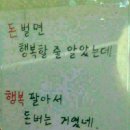 돈 벌면
행복할 줄 알았는데
행복 팔아서
돈버는 거였네